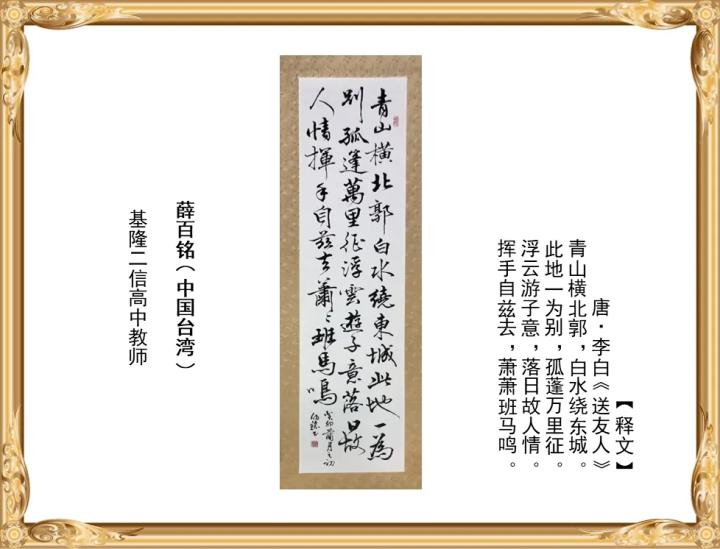 【释文】
唐·李白《送友人》
青山横北郭，白水绕东城。
此地一为别，孤蓬万里征。
浮云游子意，落日故人情。
挥手自兹去，萧萧班马鸣。
青山橫北郭白水繞東城此地一為
別孤蓬萬里征浮雲遊子意落日故
人情揮手自茲去蕭〻班馬鳴
癸卯月之初
薛百铭（中国台湾）
基隆二信高中教师